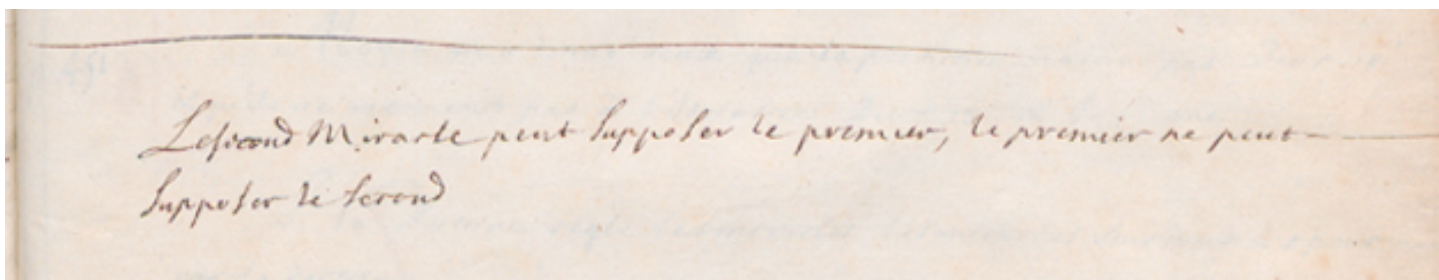 Le second Miracle peut supposer le premier, le premier ne peut
supposer le second